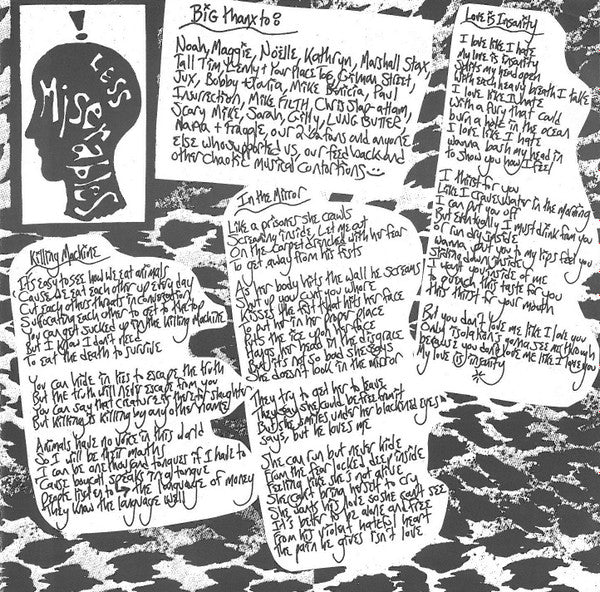 !
LESS
MisERAbLES
Big Thanx to:
Noah, Maggie, Noëlle, Kathryn, Marshall Stax,
Tall Tim, Lenny + Your Place Too, Gilman Street,
Jux, Bobby + Tania, Mike Benicia, Paul
Insurrection, MIKE FILTH, Chris Slap-a-ham,
Scary Mike, Sarah, Gilly, LUNG BUTTER,
+ Fraggle, our 2 cat fans and anyone
else who supported us, our feedback and
other chaotic musical contortions
Love is Insanity
I love like I hate
My love is insanity
Splits my head open
With each heavy breath I take
I love like I hate
With a fury that could
burn a hole in the ocean
I love like I hate
wanna bash my head in
to show you how I feel
I thirst for you
Like I crave water in the morning
I can put you off
But eventually I must drink from you
or run dry inside
Wanna put you to my lips feel you
Sliding down inside
I want you inside of me
I quench this taste for you
this thirst for your mouth
But you don't love me like I love you
Only isolation's gonna see me through
because you don't love me like I love you
My love is insanity
In the Mirror
Like a prisoner she crawls
Screaming inside, Let me out
On the carpet drenched with her fear
To get away from his fists
As her body hits the wall he screams
Shut up you cunt you whore
Kisses the fist that hits her face
To put her in her proper place
Puts the ice upon her face
Hangs her head in the disgrace
But it's not so bad she says
She doesn't look in the mirror
They try to get her to leave
They say she could be free
But she smiles under her blackened eyes
says, but he loves me
She can run but never hide
From the fear locked deep inside
Feeling like she's not alive
She can't bring herself to cry
She wants his love so she can't see
It's better to be alone and free
From his violent hateful heart
The pain he gives isn't love
Killing Machine
It's easy to see how we eat animals
Cause we eat each other up every day
Cut each others throats in conversation
Suffocating each other to get to the top
You can get sucked up in the killing machine
But I know I don't need
To eat the death to survive
You can hide in lies to escape the truth
But the truth will never escape from you
You can say that creature is there to slaughter
But killing is killing by any other name
Animals have no voice in this world
So I will be their mouths
I can be one thousand tongues if I have to
Cause boycott speaks in a tongue
People listen to → the language of money
They know the language well